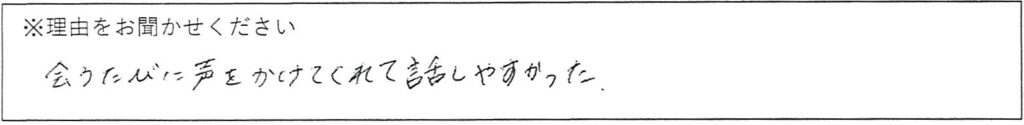 ※理由をお聞かせください
会うたびに声をかけてくれて話しやすかった.